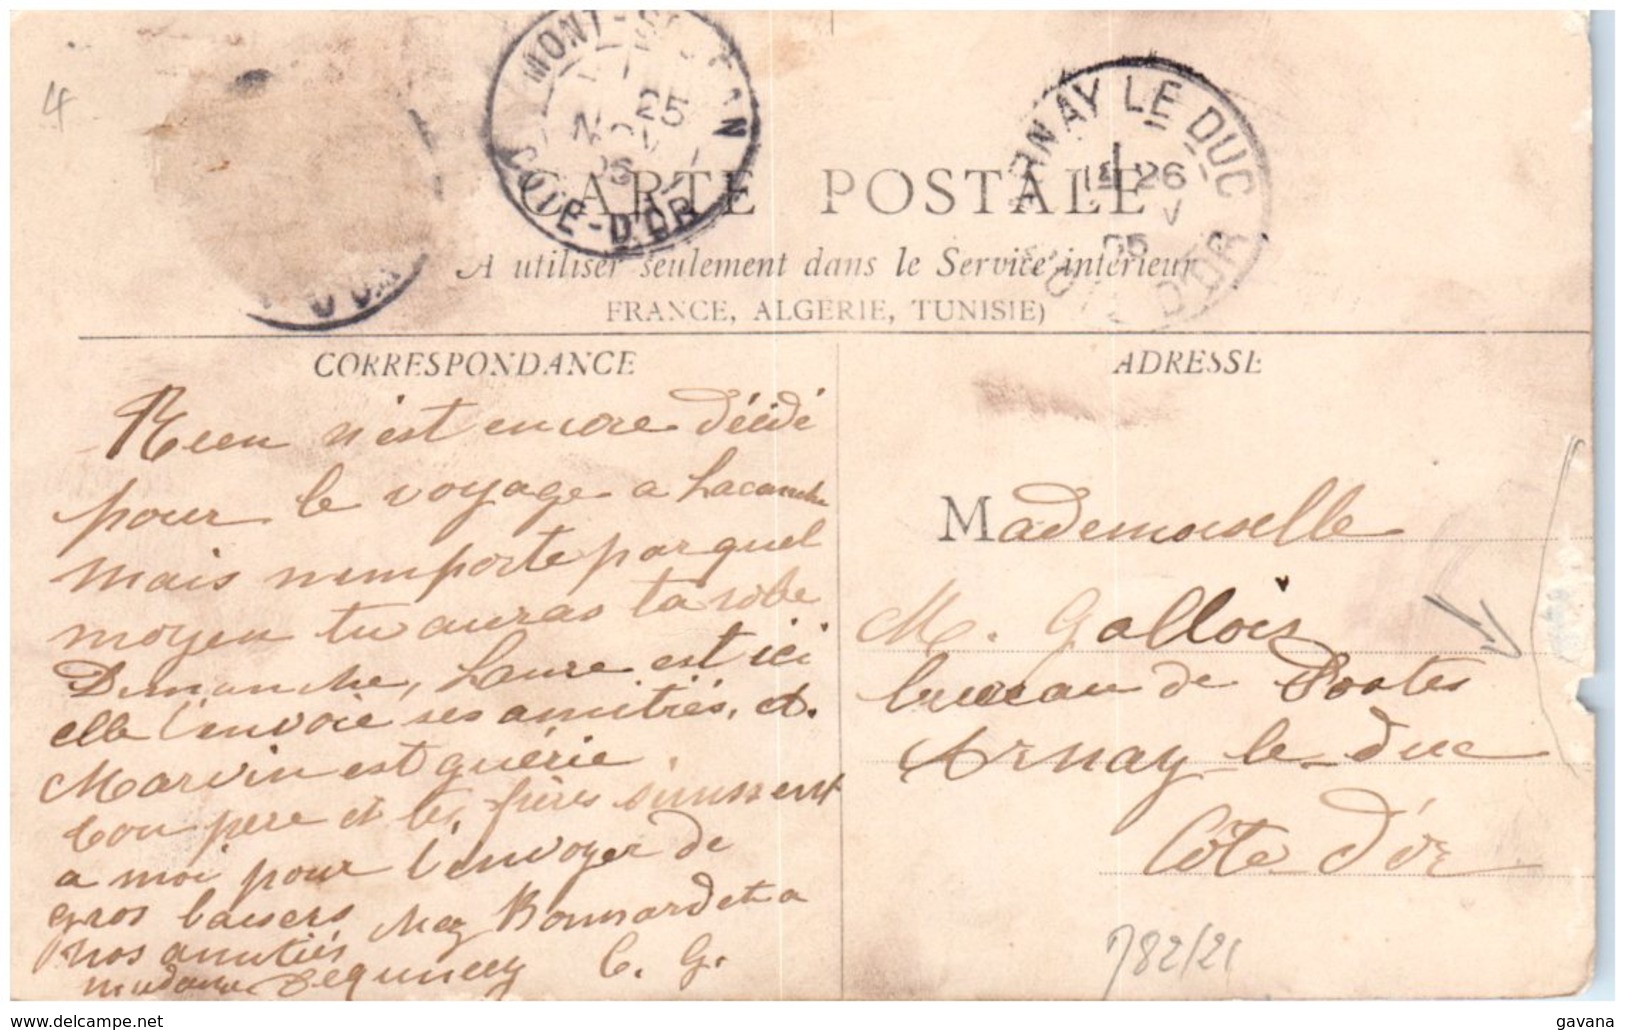 4
MONT-ST-JEAN
25
05
COTE-D'OR
ARNAY LE DUC
1E 26
V
05
D'OR
CARTE POSTALE
A utiliser seulement dans le Service intérieur
FRANCE, ALGERIE, TUNISIE)
CORRESPONDANCE
Rien n'est encore décidé
pour le voyage a Lacanche
mais nimporte par quel
moyen tu auras ta robe
Dimanche, Laure est ici
elle t'envoie ses amitiés, et
Marvin est guérie
ton père et tes frères s'unissent
a moi pour t'envoyer de
gros baisers
nos amitiés chez Bonnard et a
madame C. G.
ADRESSE
Mademoiselle
M. Gallois
bureau de Postes
Arnay-le-duc
Côte d'or
782/21
www.delcampe.net
gavana